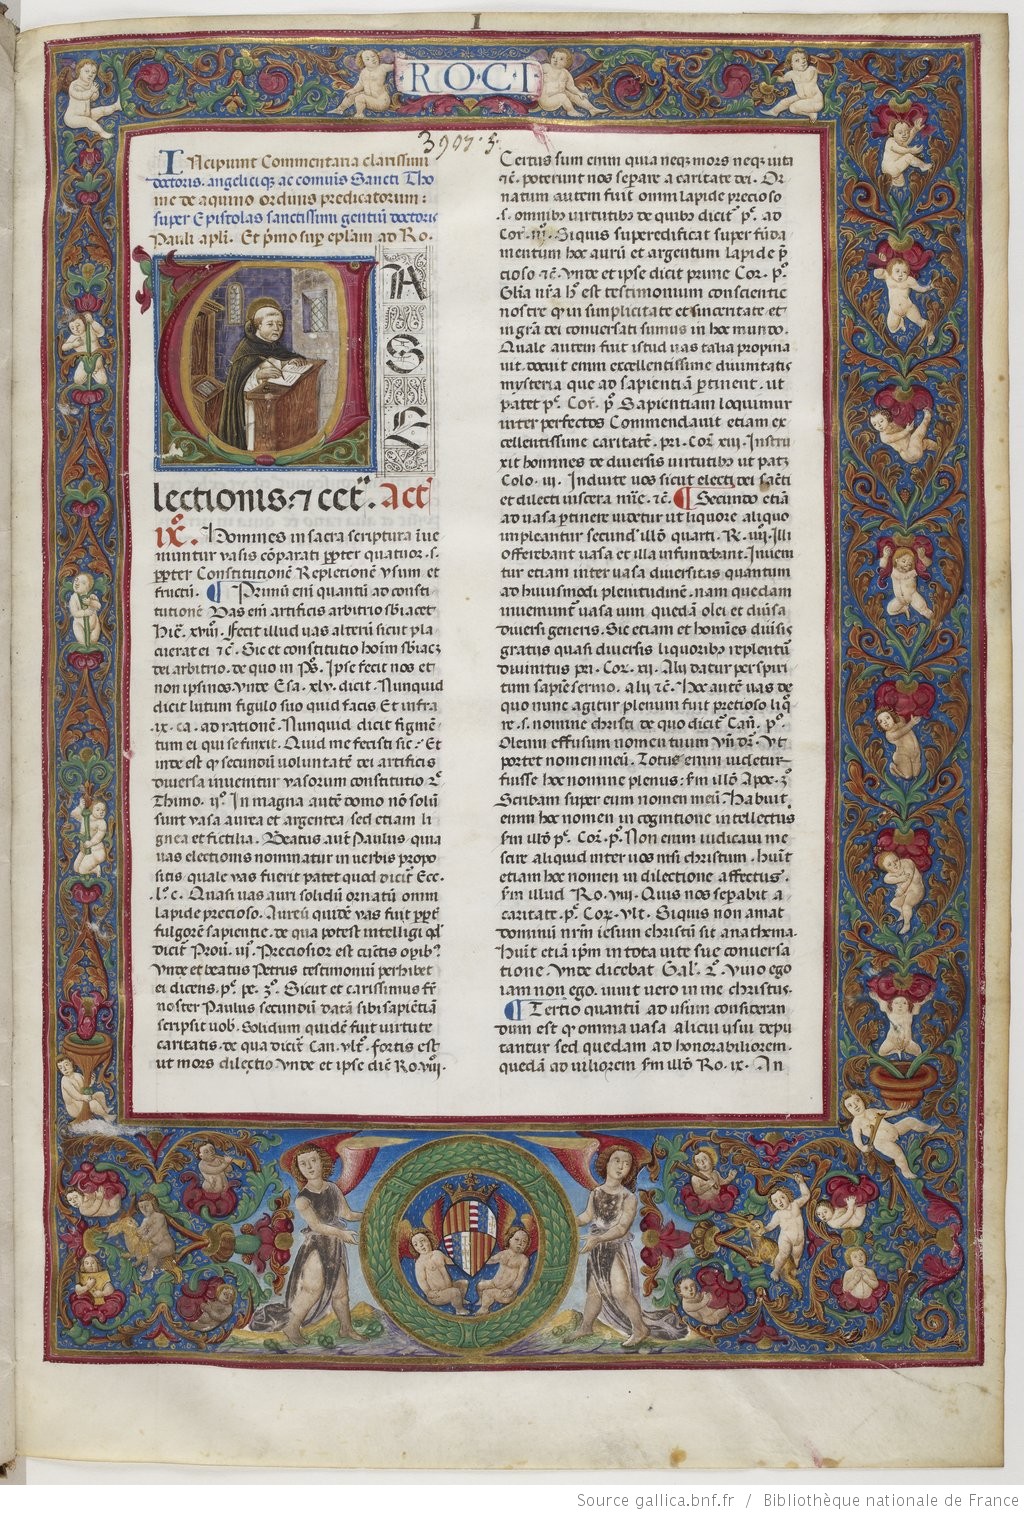 1
·RO·C·I·
3907·5·
INcipiunt Commentaria clarissimi
doctoris. angeliciq3 ac comuīs Sancti Tho
me de aquino ordinis predicatorum:
super Epistolas sanctissimi gentiū doctoris
Pauli apłi. Et p̄mo sup ep̄lam ad Ro.
V
A
S
E
lectionis. ⁊ cet̄. Act
ix°. Homines in sacra scriptura īue
niuntur vasis cōparati ꝓpter quatuor. s.
ꝓpter Constitutionē Repletionē vsum et
fructū. ¶ Primū em̄ quantū ad consti-
tutionē Vas em̄ artificis arbitrio sbiacet
Hie. xviii. Fecit illud vas alterū sicut pla
cuerat ei ⁊c̄. Sic et constitutio hoīm sbiacʒ
dei arbitrio. de quo in Ps. Ipse fecit nos et
non ipsi nos. Vnde Esa. xlv. dicit. Nunquid
dicit lutum figulo suo quid facis Et infra
.ix. ca. ad rationē. Nunquid dicit figmē-
tum ei qui se finxit. Quid me fecisti sic: Et
inde est qꝫ secundū voluntatē dei artificis
diversa inveniuntur vasorum constitutio 2ᵉ
Thimo. ii°. In magna autē domo nō solū
sunt vasa aurea et argentea. sed etiam li
gnea et fictilia. Beatus aut̄ Paulus. quia
vas electionis nominatur in verbis propo
sitis quale vas fuerit patet quod dicit̄ Ecc-
.l°. c. Quasi vas auri solidū ornatū omni
lapide precioso. Aureū quidē vas fuit ꝓpt̄
fulgorē sapientie. de qua potest intelligi qd̄
dicit Proū. iii. Preciosior est cūctis opib?
Vnde et beatus Petrus testimoniū perhibet
ei dicens. p°. pe. 3°. Sicut et carissimus fr̄
noster Paulus secundū datā sibi sapiētiā
scripsit vob̄. Solidum quidē fuit virtute
caritatis. de qua dicit̄ Can. vlt̄. fortis est
ut mors dilectio Vnde et ipse dic̄ Ro. viii.
Certus sum enim quia neq3 mors neq3 vita
⁊c̄. poterunt nos separe a caritate dei. Or
natum autem fuit omni lapide precioso
.s. omnib? virtutib? de quib? dicit p°. ad
Cor. iii°. Siquis superedificat super fūda
mentum hoc aurū et argentum lapide p̄
cioso ⁊c̄. Vnde et ipse dicit prime Cor. p°.
Glīa nr̄a h̄ est testimonium conscientie
nostre qꝫ in simplicitate et sinceritate et
in grā dei conversati sumus in hoc mundo.
Quale autem fuit istud vas talia propina
vit. docuit enim excellentissime divinitatis
mysteria que ad sapientiam ꝑtinent. ut
patet p°. Cor. p° Sapientiam loquimur
inter perfectos Commendavit etiam ex
cellentissime caritatē. pri. Cor. xiii. Instru
xit homines de diversis virtutibus ut pat3
Colo. iii. Induite vos sicut electi dei sācti
et dilecti viscera mīe. ⁊c̄. ¶ Secundo etiā
ad vasa ꝑtinere videtur ut liquore aliquo
impleantur secund̄ illō quarti. R. iiii. Illi
offerebant vasa et illa infundebant. Inveni
tur etiam inter vasa diversitas quantum
ad huiusmodi plenitudinē. nam quedam
inveniunt̄ vasa vini. quedā olei et diūsa
diversi generis. Sic etiam et homīes diūsis
gratiis quasi diversis liquorib? replentur
divinitus pri. Cor. xii. Alij datur per spiri
tum sapiē sermo. alij ⁊c̄. Hoc autē vas de
quo nunc agitur plenum fuit precioso liq°
re. s. nomine christi de quo dicit̄ Can̄. p°.
Oleum effusum nomen tuum Vn̄ dr̄. Vt
portet nomen meū. Totus enim videtur
fuisse hoc nomine plenus: s̄m illō Apoc. 3°
Scribam super eum nomen meū Habuit
enim hoc nomen in cognitione intellectus
s̄m illō p°. Cor. p°. Non enim iudicavi me
scire aliquid inter vos nisi christum. huīt
etiam hoc nomen in dilectione affectus.
s̄m illud Ro. viii. Quis nos seꝑabit a
caritate. p°. Cor. vlt. Siquis non amat
dominū nr̄m iesum christū sit anathema.
Huīt etiā ip̄m in tota vite sue conversa
tione Vnde dicebat Gal. 2°. Vivo ego
iam non ego. vivit vero in me christus.
¶ Tertio quantū ad usum consideran
dum est qꝫ omnia vasa alicui usui depu
tantur sed quedam ad honorabiliorem.
quedā ad viliorem s̄m illō Ro. ix. An
Source gallica.bnf.fr / Bibliothèque nationale de France